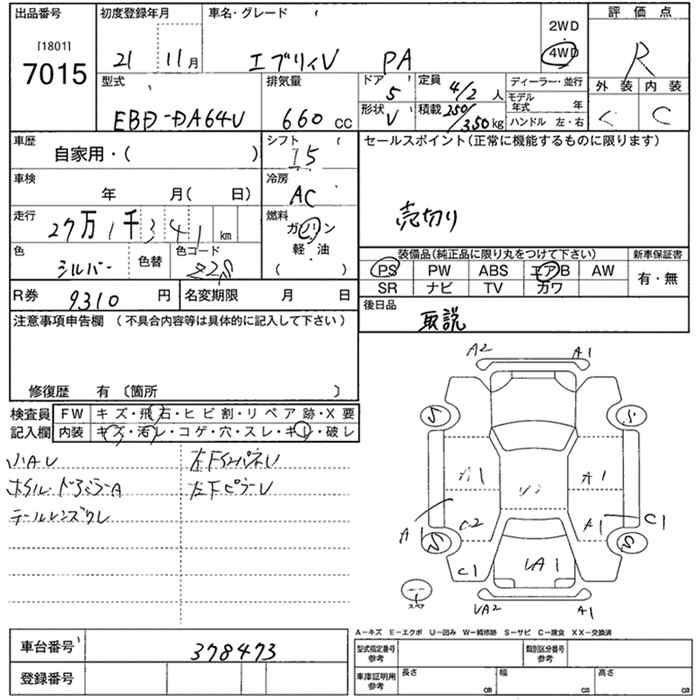 出品番号 初度登録年月 車名・グレード 2WD 評価点
[1801] 21 11月 エブリィV PA 4WD R
7015 型式 排気量 ドア 定員 ディーラー・並行 外装 内装
5 4/2人 モデル年式 年 C C
EBD-DA64V 660cc 形状 V 積載 250/350kg ハンドル 左・右
車歴 シフト セールスポイント(正常に機能するものに限ります)
自家用・( ) I5
車検 冷房
年 月( 日) AC 売切り
走行 燃料
27万1千341km ガソリン
色 色替 色コード 軽・油 装備品(純正品に限り丸をつけて下さい) 新車保証書
シルバー Z2S ( ) PS PW ABS エアB AW 有・無
R券 9310円 名変期限 月 日 SR ナビ TV カワ
注意事項申告欄(不具合内容等は具体的に記入して下さい) 後日品
取説
修復歴 有〔箇所 〕
検査員 FW キズ・飛石・ヒビ割・リペア跡・X要
記入欄 内装 キズ・汚レ・コゲ・穴・スレ・キレ・破レ
小AU 左FインパネU
ホイル・ドアミラーA 左FピラーU
テールレンズワレ
A2 A1
5 5
A1 A1
A1 C2 A1 C1
5 5
C1 UA1
スペア UA2 A1
A-キズ E-エクボ U-凹み W-補修跡 S-サビ C-腐食 XX-交換済
車台番号 378473 型式指定番号 参考 類別区分番号 参考
登録番号 車庫証明用 参考 長さ cm 幅 cm 高さ cm